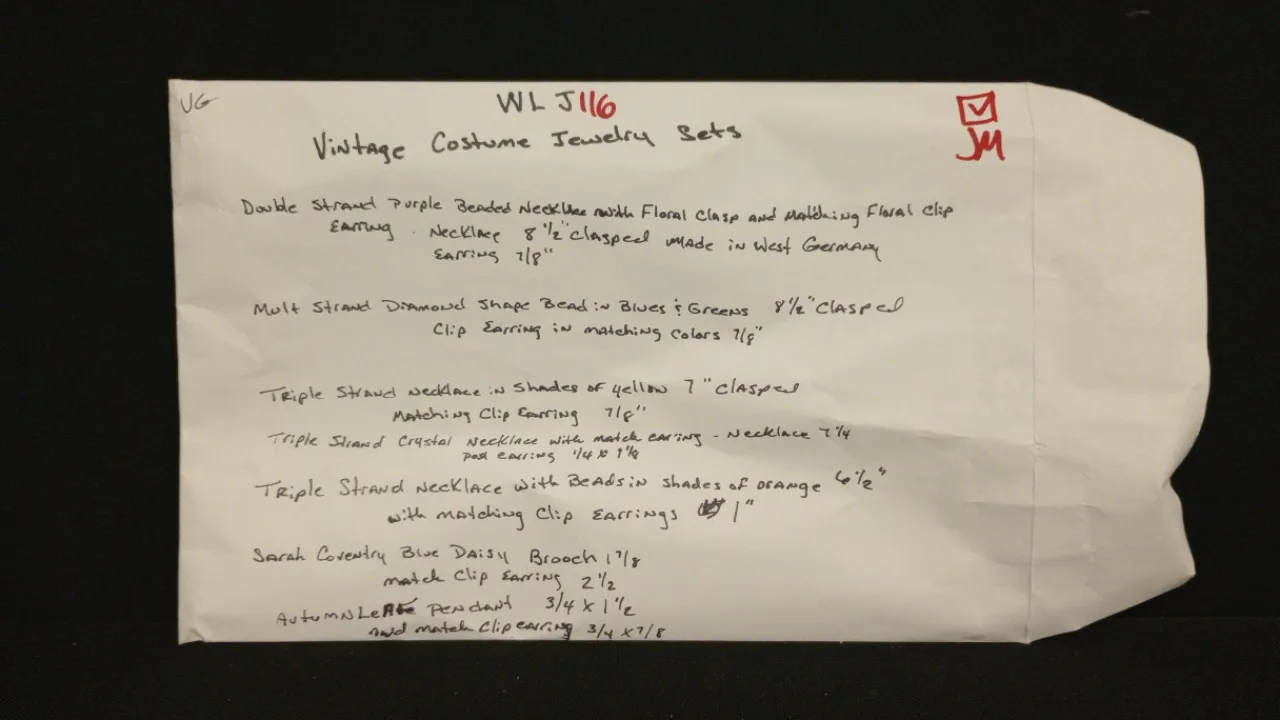 VG
WLJ116
JM
Vintage Costume Jewelry Sets
Double Strand Purple Beaded Necklace with Floral Clasp and Matching Floral Clip
Earring . Necklace 8 1/2" Clasped Made in West Germany
Earring 7/8"
Mult Strand Diamond Shape Bead in Blues & Greens 8 1/2" Clasped
Clip Earring in matching Colors 7/8"
Triple Strand Necklace in Shades of yellow 7" Clasped
Matching Clip Earring 7/8"
Triple Strand Crystal Necklace with match earring - Necklace 7 1/4
post earring 1/4 x
Triple Strand Necklace with Beads in shades of orange 6 1/2"
with matching Clip Earrings 1"
Sarah Coventry Blue Daisy Brooch 1 7/8
match Clip Earring 2 1/2
Autumn Pendant 3/4 x 1 1/2
and match Clip earring 3/4 x 7/8